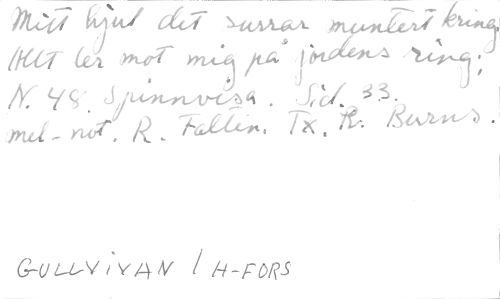 Mitt hjul det surrar muntert kring.
Allt ler mot mig på jordens ring;
N. 48. Spinnvisa. Sid. 33.
mel-not. R. Faltin. Tx. R. Burns.
GULLVIVAN / H-FORS